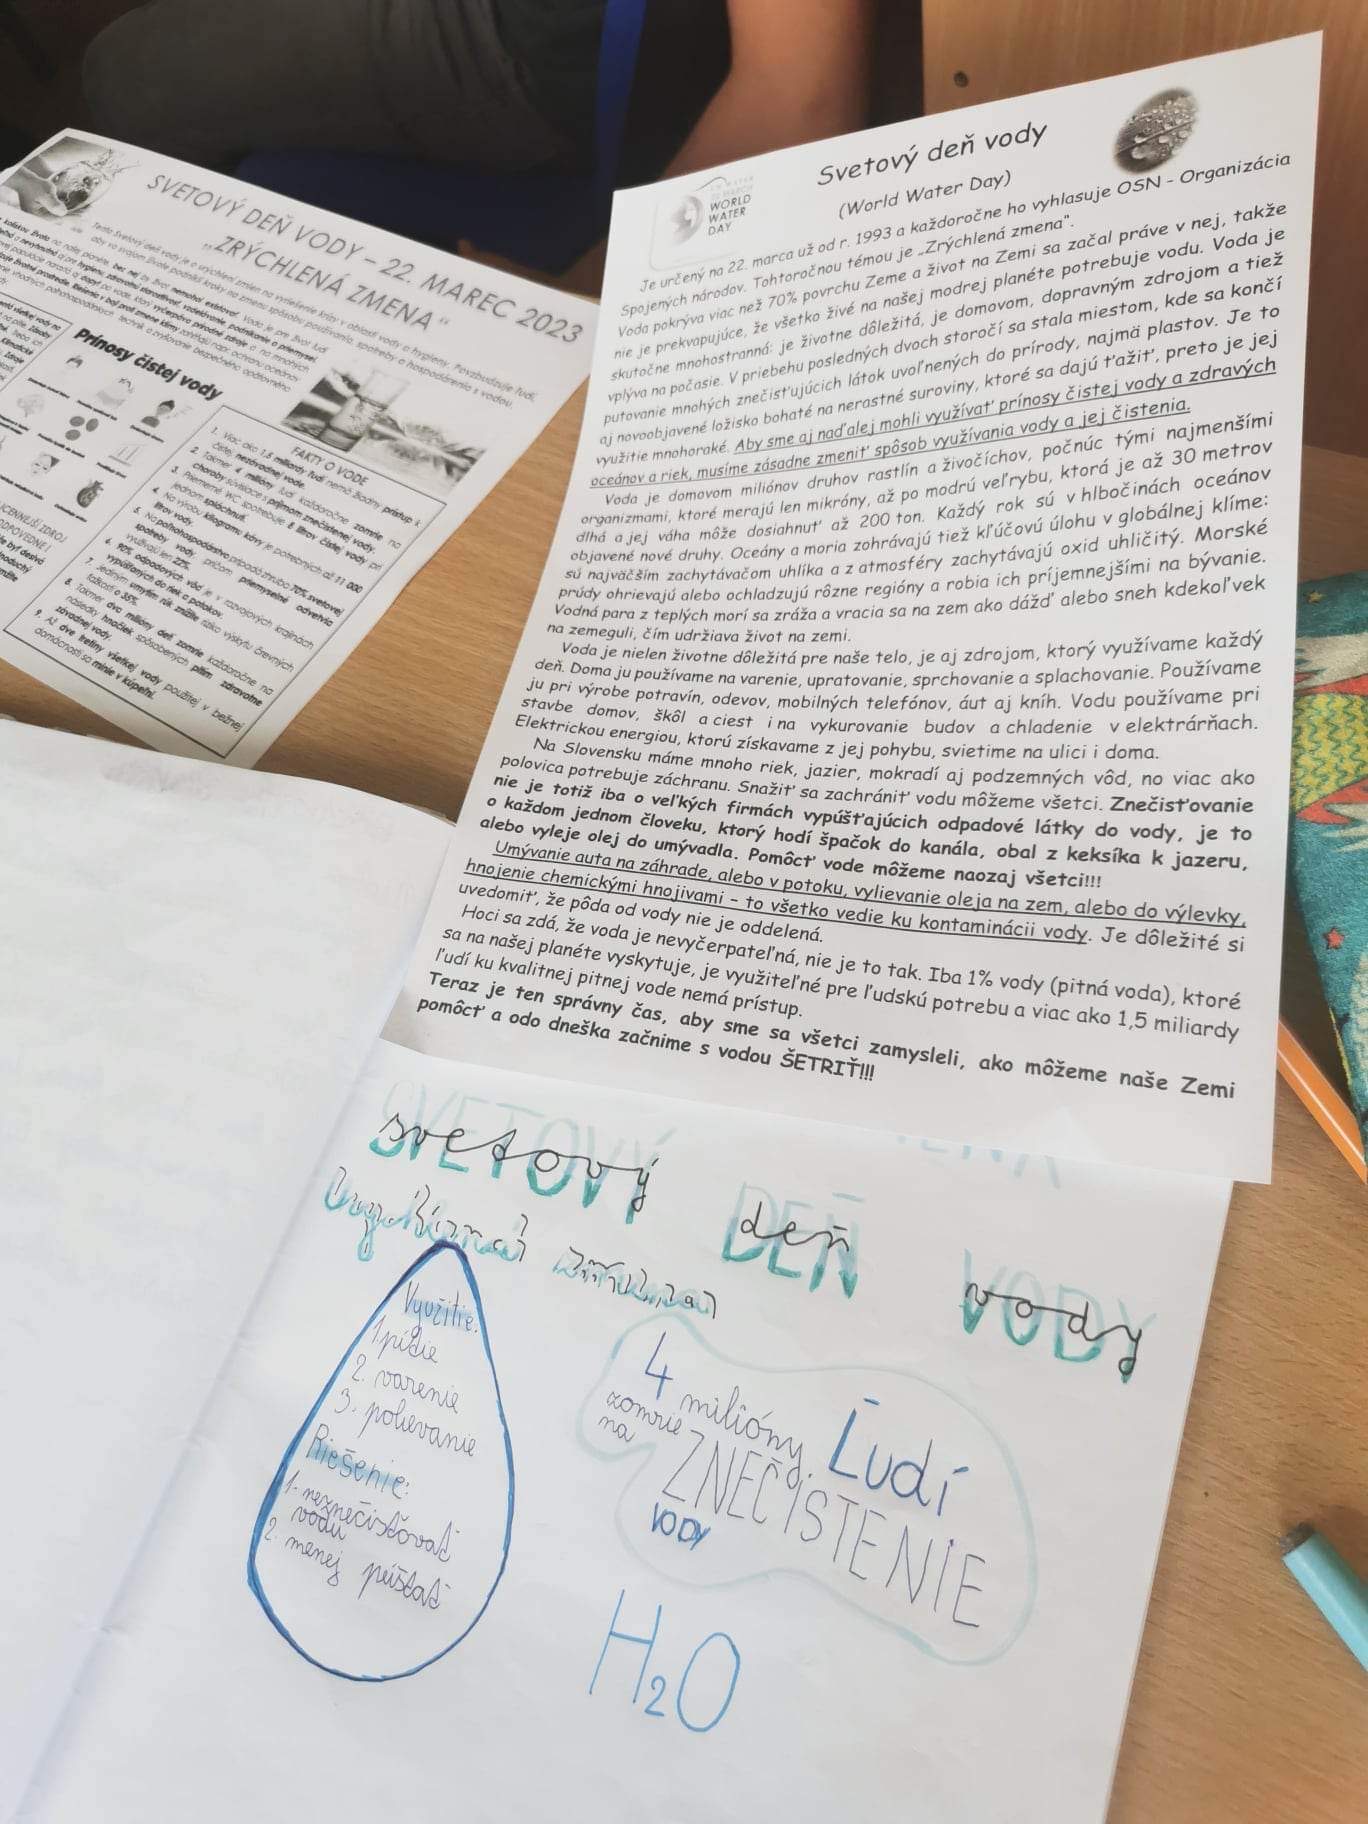 SVETOVÝ DEŇ VODY – 22. MAREC 2023
„ZRÝCHLENÁ ZMENA“
Prínosy čistej vody
FAKTY O VODE
1. Viac ako 1,5 miliardy ľudí nemá žiadny prístup k
čistej, nezávadnej vode.
2. Takmer 4 milióny ľudí každoročne zomrie na
choroby súvisiace s príjmom znečistenej vody.
3. Priemerné WC spotrebuje 8 litrov čistej vody pri
jednom spláchnutí.
4. Na výrobu kilogramu kávy je potrebných až 11 000
litrov vody.
5. Na poľnohospodárstvo pripadá zhruba 70% svetovej
spotreby vody, pričom priemyselné odvetvia
využívajú len 22%.
6. 90% odpadových vôd je v rozvojových krajinách
vypúšťaných do riek a potokov.
7. Jediným umytím rúk znížite riziko výskytu črevných
ťažkostí o 35%.
8. Takmer dva milióny detí zomrie každoročne na
následky hnačiek spôsobených pitím zdravotne
závadnej vody.
9. Až dve tretiny všetkej vody použitej v bežnej
domácnosti sa minie v kúpeľni.
WORLD
WATER
DAY
Svetový deň vody
(World Water Day)
Je určený na 22. marca už od r. 1993 a každoročne ho vyhlasuje OSN - Organizácia
Spojených národov. Tohtoročnou témou je „Zrýchlená zmena“.
Voda pokrýva viac než 70% povrchu Zeme a život na Zemi sa začal práve v nej, takže
nie je prekvapujúce, že všetko živé na našej modrej planéte potrebuje vodu. Voda je
skutočne mnohostranná: je životne dôležitá, je domovom, dopravným zdrojom a tiež
vplýva na počasie. V priebehu posledných dvoch storočí sa stala miestom, kde sa končí
putovanie mnohých znečisťujúcich látok uvoľnených do prírody, najmä plastov. Je to
aj novoobjavené ložisko bohaté na nerastné suroviny, ktoré sa dajú ťažiť, preto je jej
využitie mnohoraké. Aby sme aj naďalej mohli využívať prínosy čistej vody a zdravých
oceánov a riek, musíme zásadne zmeniť spôsob využívania vody a jej čistenia.
Voda je domovom miliónov druhov rastlín a živočíchov, počnúc tými najmenšími
organizmami, ktoré merajú len mikróny, až po modrú veľrybu, ktorá je až 30 metrov
dlhá a jej váha môže dosiahnuť až 200 ton. Každý rok sú v hlbočinách oceánov
objavené nové druhy. Oceány a moria zohrávajú tiež kľúčovú úlohu v globálnej klíme:
sú najväčším zachytávačom uhlíka a z atmosféry zachytávajú oxid uhličitý. Morské
prúdy ohrievajú alebo ochladzujú rôzne regióny a robia ich príjemnejšími na bývanie.
Vodná para z teplých morí sa zráža a vracia sa na zem ako dážď alebo sneh kdekoľvek
na zemeguli, čím udržiava život na zemi.
Voda je nielen životne dôležitá pre naše telo, je aj zdrojom, ktorý využívame každý
deň. Doma ju používame na varenie, upratovanie, sprchovanie a splachovanie. Používame
ju pri výrobe potravín, odevov, mobilných telefónov, áut aj kníh. Vodu používame pri
stavbe domov, škôl a ciest i na vykurovanie budov a chladenie v elektrárňach.
Elektrickou energiou, ktorú získavame z jej pohybu, svietime na ulici i doma.
Na Slovensku máme mnoho riek, jazier, mokradí aj podzemných vôd, no viac ako
polovica potrebuje záchranu. Snažiť sa zachrániť vodu môžeme všetci. Znečisťovanie
nie je totiž iba o veľkých firmách vypúšťajúcich odpadové látky do vody, je to
o každom jednom človeku, ktorý hodí špačok do kanála, obal z keksíka k jazeru,
alebo vyleje olej do umývadla. Pomôcť vode môžeme naozaj všetci!!!
Umývanie auta na záhrade, alebo v potoku, vylievanie oleja na zem, alebo do výlevky,
hnojenie chemickými hnojivami – to všetko vedie ku kontaminácii vody. Je dôležité si
uvedomiť, že pôda od vody nie je oddelená.
Hoci sa zdá, že voda je nevyčerpateľná, nie je to tak. Iba 1% vody (pitná voda), ktoré
sa na našej planéte vyskytuje, je využiteľné pre ľudskú potrebu a viac ako 1,5 miliardy
ľudí ku kvalitnej pitnej vode nemá prístup.
Teraz je ten správny čas, aby sme sa všetci zamysleli, ako môžeme naše Zemi
pomôcť a odo dneška začnime s vodou ŠETRIŤ!!!
svetový deň vody
Využitie:
1. pitie
2. varenie
3. polievanie
Riešenie:
1. neznečisťovať
vodu
2. menej púšťať
4 milióny Ľudí
zomrie
na ZNEČISTENIE
VODY
H₂O